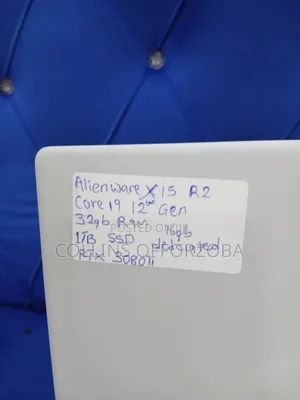 Alienware X15 R2
Core i9 12th Gen
32gb Ram
16gb
1TB SSD dedicated
RTX 3080Ti
POSTED ON JIJI
COLLINS OFFORZOBA